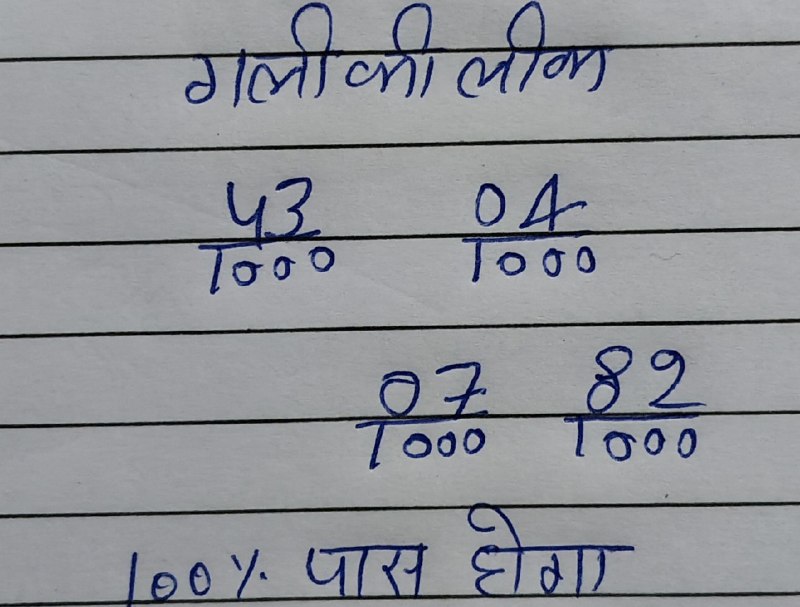 गली की लीक
43/1000 04/1000
07/1000 82/1000
100% पास होगा